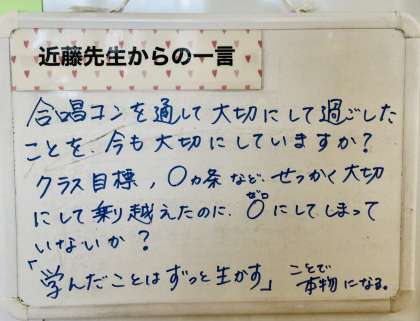 近藤先生からの一言
合唱コンを通して大切にして過ごした
ことを、今も大切にしていますか?
クラス目標、〇ヵ条など、せっかく大切
にして乗り越えたのに、0にしてしまって
ゼロ
いないか?
「学んだことはずっと生かす」ことで
本物になる。